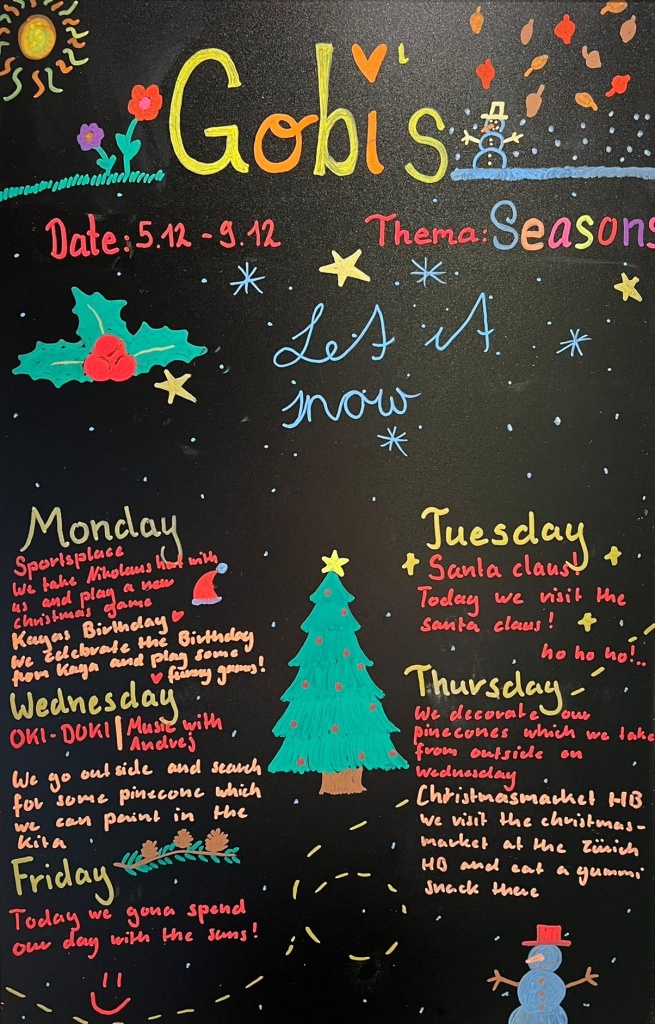 Gobi's
Date: 5.12 - 9.12
Thema: Seasons
Let it
snow
Monday
Sportsplace
We take Nikolaus hat with
us and play a new
christmas game
Kayas Birthday
We celebrate the Birthday
from Kaya and play some
funny games!
Tuesday
Santa claus!
Today we visit the
santa claus!
ho ho ho!..
Wednesday
OKI-DOKI | Music with
Andrej
We go outside and search
for some pinecone which
we can paint in the
kita
Thursday
We decorate our
pinecones which we take
from outside on
wednesday
Christmasmarket HB
We visit the christmas-
market at the Zürich
HB and eat a yummi
snack there
Friday
Today we gona spend
our day with the suns!